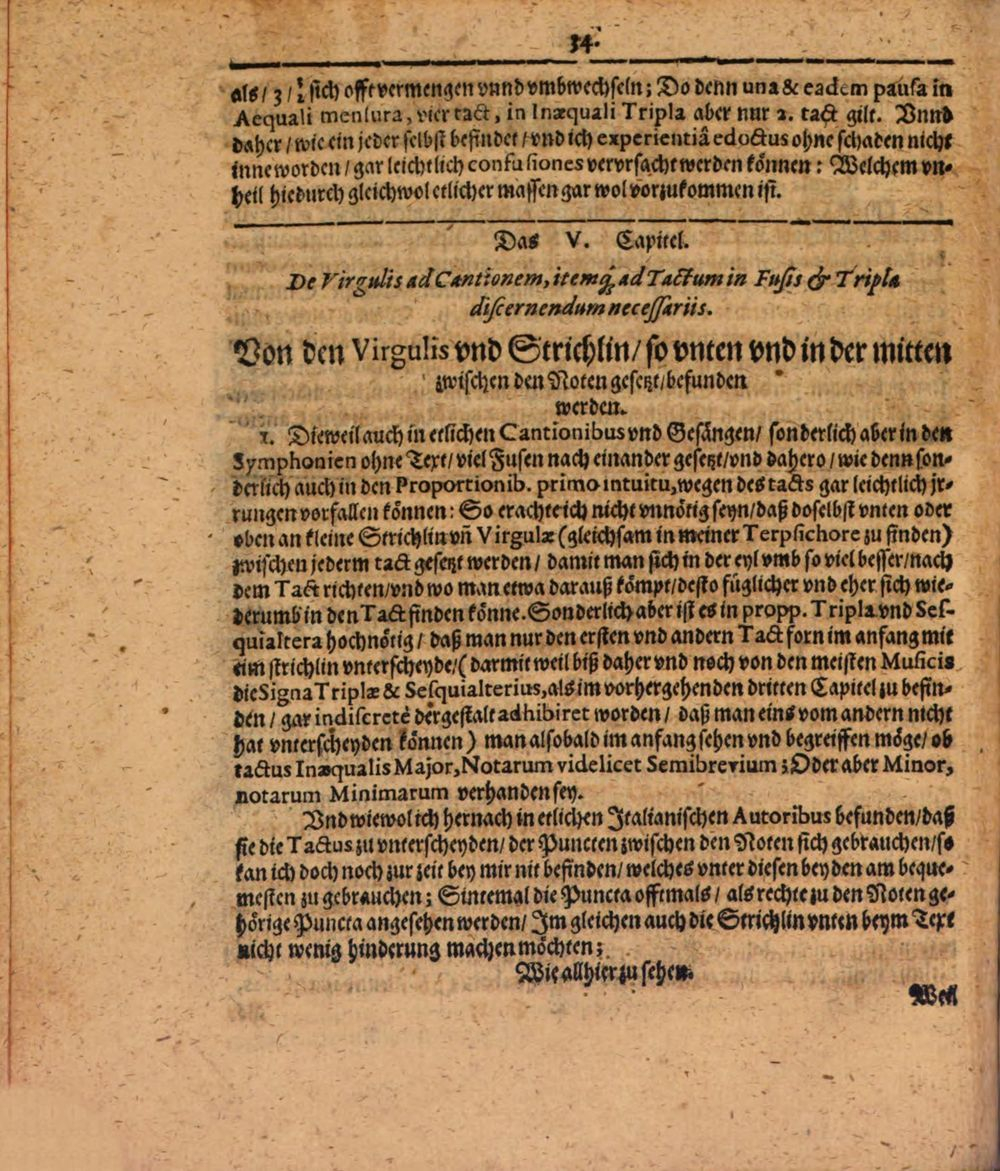 34.
als / 3 / ¾ sich offt vermengen vnnd vmbwechseln; Do denn una & eadem pausa in
Aequali mensura, vier tact, in Inæquali Tripla aber nur 2. tact gilt. Vnnd
daher / wie ein jeder selbst befindet / vnd ich experientiâ edoctus ohne schaden nicht
inne worden / gar leichtlich confusiones vervrsacht werden können: Welchem vn-
heil hiedurch gleichwol etlicher massen gar wol vorzukommen ist.
Das V. Capitel.
De Virgulis ad Cantionem, itemq́; ad Tactum in Fusis & Tripla
discernendum necessariis.
Von den Virgulis vnd Strichlin / so vnten vnd in der mitten
zwischen den Noten gesetzt / befunden
werden.
1. Dieweil auch in etlichen Cantionibus vnd Gesängen / sonderlich aber in den
Symphonien ohne Text / viel Fusen nach einander gesetzt / vnd dahero / wie denn son-
derlich auch in den Proportionib. primo intuitu, wegen des tacts gar leichtlich jr-
rungen vorfallen können: So erachte ich nicht vnnötig seyn / daß doselbst vnten oder
oben an kleine Strichlin vñ Virgulæ (gleichsam in meiner Terpsichore zu finden)
zwischen jederm tact gesetzt werden / damit man sich in der eyl vmb so viel besser / nach
dem Tact richten / vnd wo man etwa darauß kömpt / desto füglicher vnd eher sich wie-
derumb in den Tact finden könne. Sonderlich aber ist es in propp. Tripla vnd Ses-
quialtera hochnötig / daß man nur den ersten vnd andern Tact forn im anfang mit
eim strichlin vnterscheyde / (darmit weil biß daher vnd noch von den meisten Musicis
die Signa Triplæ & Sesquialterius, als im vorhergehenden dritten Capitel zu befin-
den / gar indiscretè dergestalt adhibiret worden / daß man eins vom andern nicht
hat vnterscheyden können) man alsobald im anfang sehen vnd begreiffen möge / ob
tactus Inæqualis Major, Notarum videlicet Semibrevium; Oder aber Minor,
notarum Minimarum verhanden sey.
Vnd wiewol ich hernach in etlichen Italianischen Autoribus befunden / daß
sie die Tactus zu vnterscheyden / der Puncten zwischen den Noten sich gebrauchen / so
kan ich doch noch zur zeit bey mir nit befinden / welches vnter diesen beyden am beque-
mesten zu gebrauchen; Sintemal die Puncta offtmals / als rechte zu den Noten ge-
hörige Puncta angesehen werden / Im gleichen auch die Strichlin vnten beym Text
nicht wenig hinderung machen möchten;
Wie allhier zu sehen.
Weil